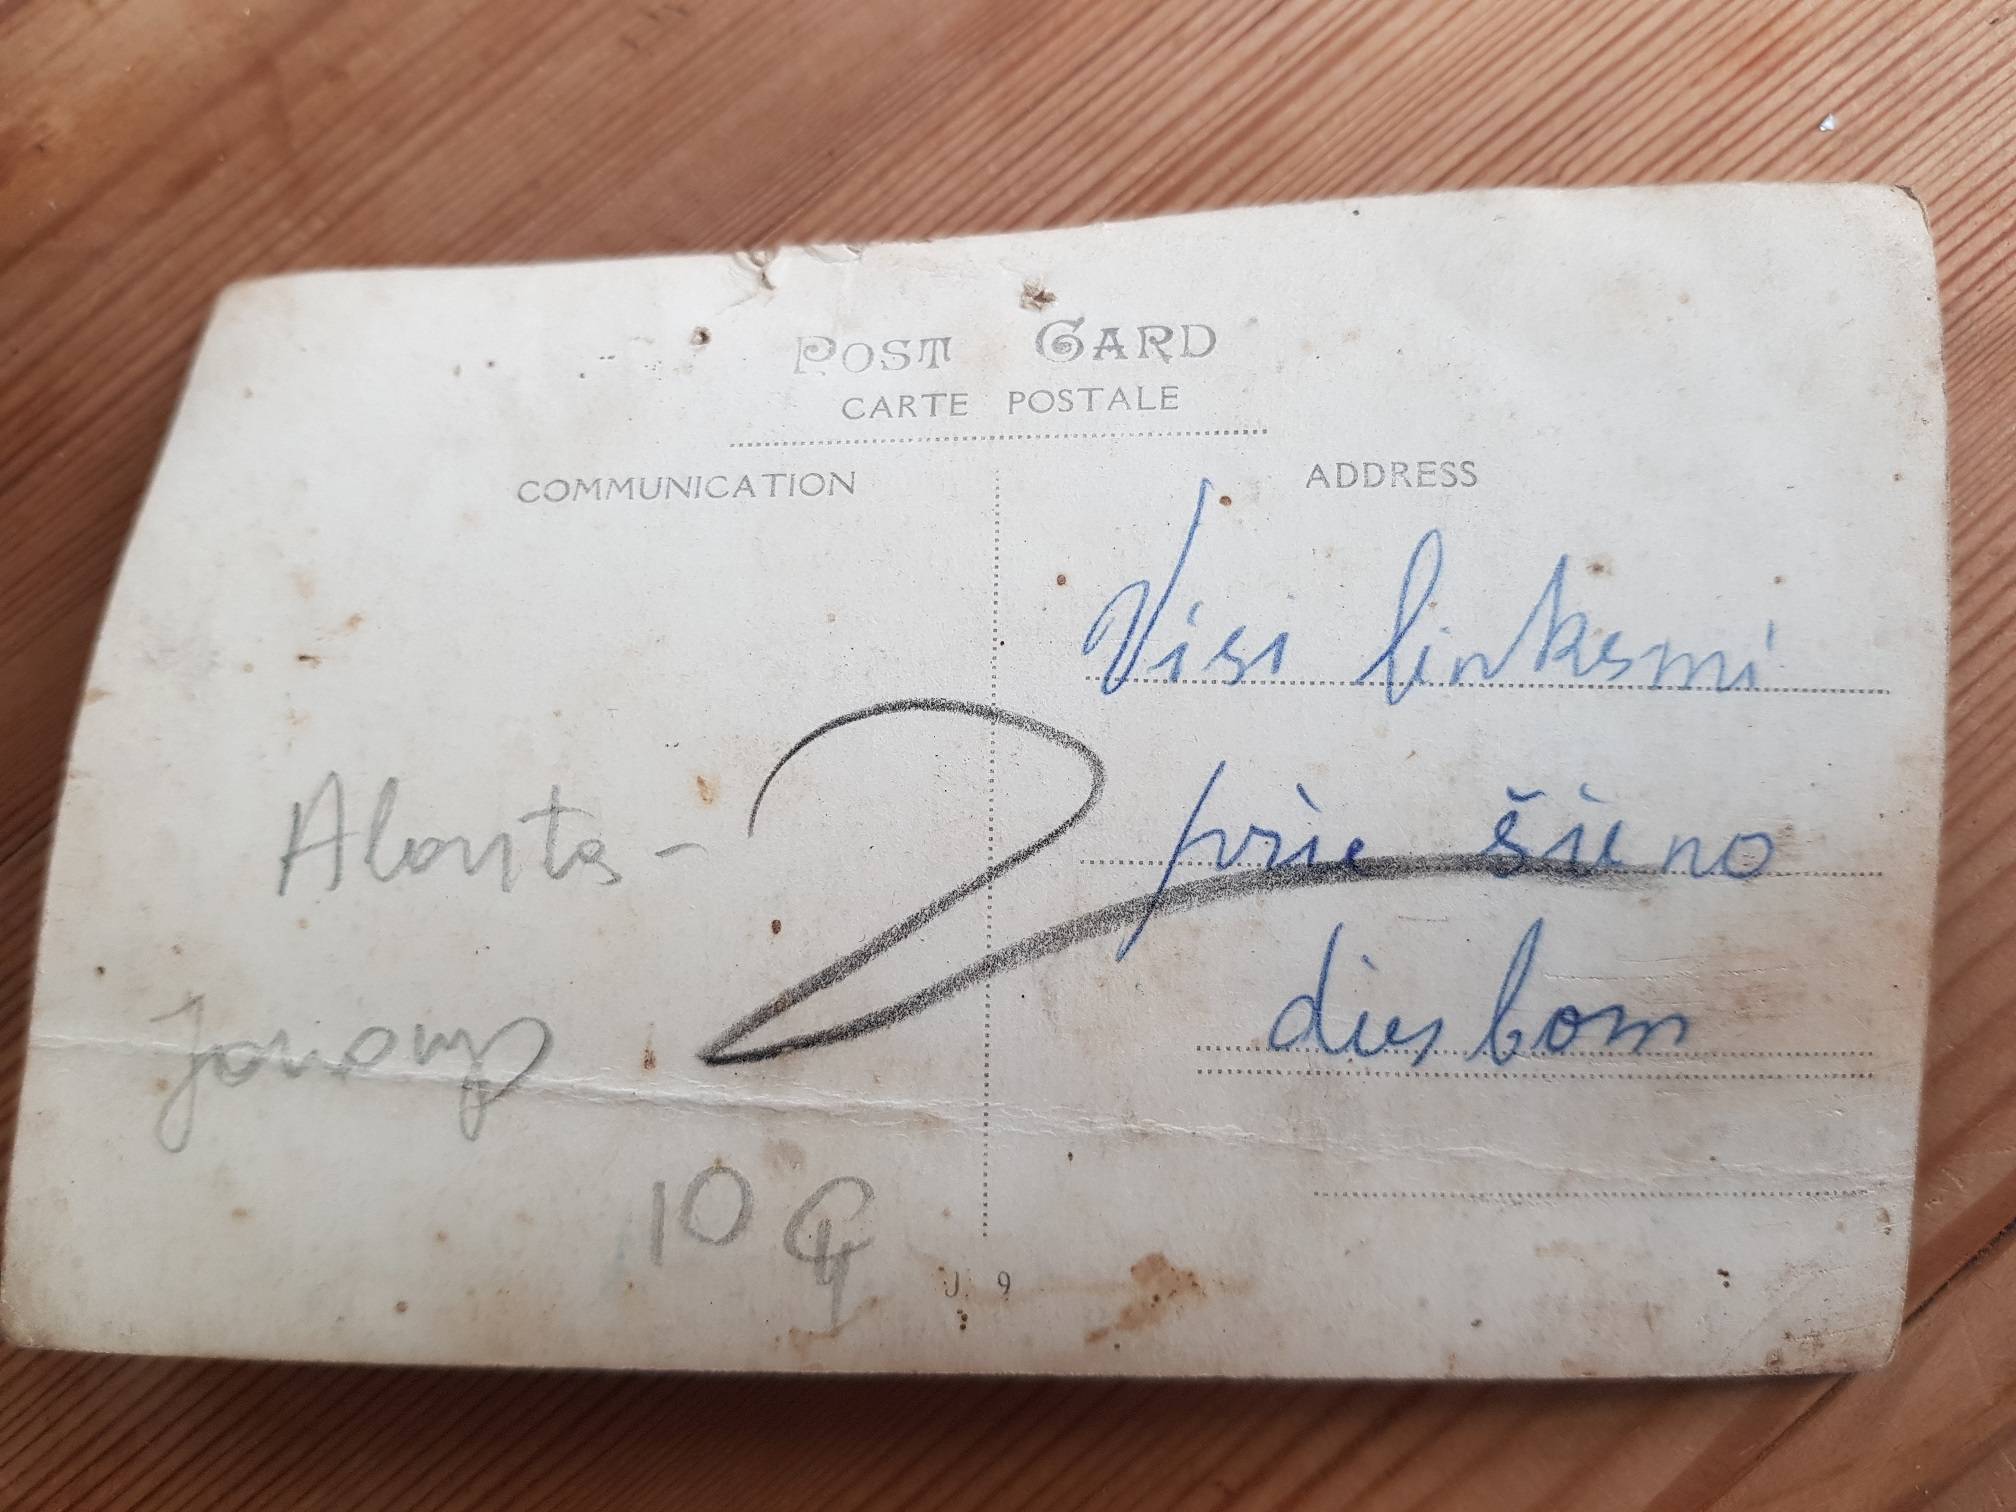 POST CARD
CARTE POSTALE
COMMUNICATION
ADDRESS
Visi linksmi
prie šieno
dies bom
Alonta -
2
10
J. 9